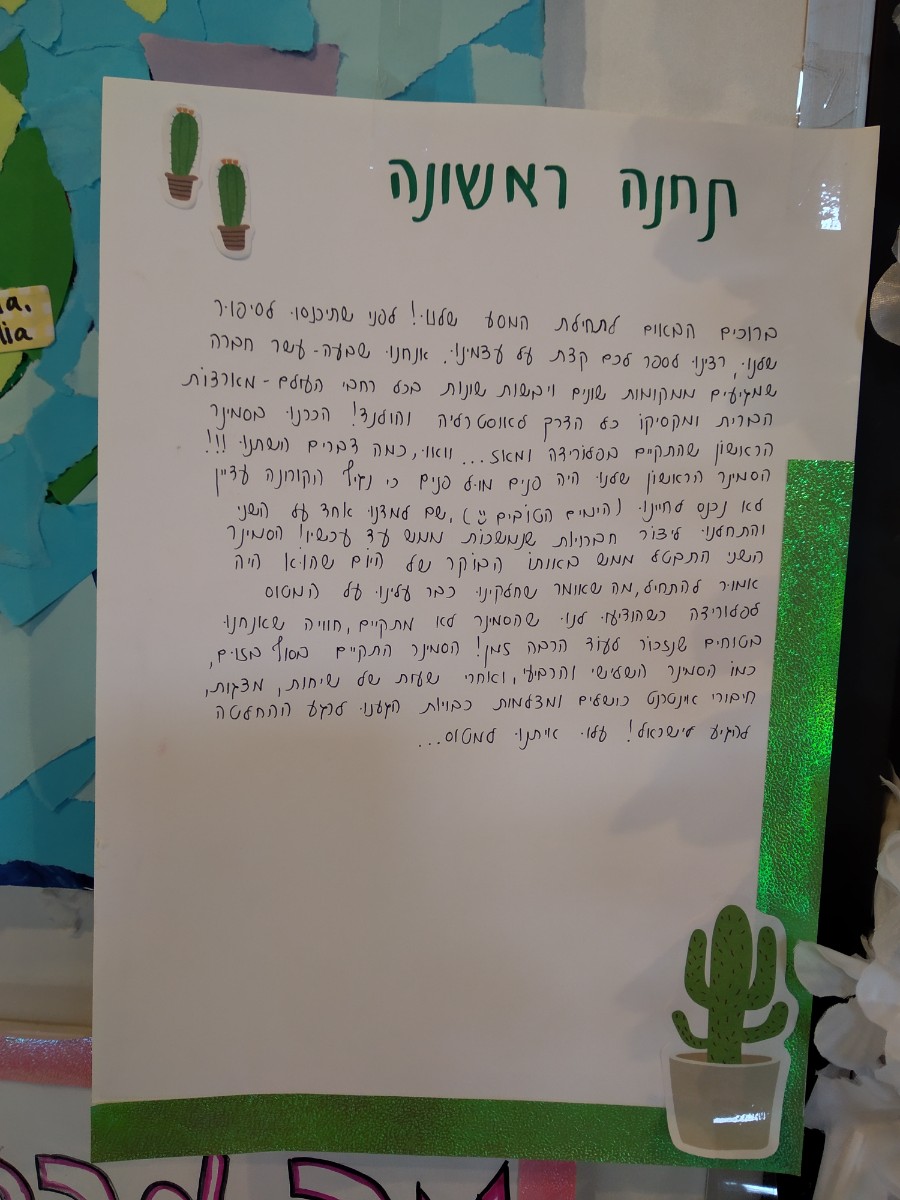 תחנה ראשונה
ברוכים הבאים לתחילת המסע שלנו! לפני שתיכנסו לסיפור
שלנו, רצינו לספר לכם קצת על עצמינו. אנחנו שבעה-עשר חברה
שמגיעים ממקומות שונים ויבשות שונות בכל רחבי העולם - מארצות
הברית ומקסיקו כל הדרך לאוסטרליה והולנד! הכרנו בסמינר
הראשון שהתקיים בפלורידה ומאז... וואו, כמה דברים השתנו !!!
הסמינר הראשון שלנו היה פנים מול פנים כי נגיף הקורונה עדיין
לא נכנס לחיינו (הימים הטובים :)), שם למדנו אחד על השני
והתחלנו ליצור חברויות שנמשכות ממש עד עכשיו! הסמינר
השני התבטל ממש באותו הבוקר של היום שהוא היה
אמור להתחיל, מה שאומר שחלקינו כבר עלינו על המטוס
לפלורידה כשהודיעו לנו שהסמינר לא מתקיים, חוויה שאנחנו
בטוחים שנזכור לעוד הרבה זמן! הסמינר התקיים בסוף בזום,
כמו הסמינר השלישי והרביעי, ואחרי שעות של שיחות, מצגות,
חיבורי אינטרנט כושלים ומצלמות כבויות הגענו לרגע ההחלטה
להגיע לישראל! עלו איתנו למטוס...
ia.
lia